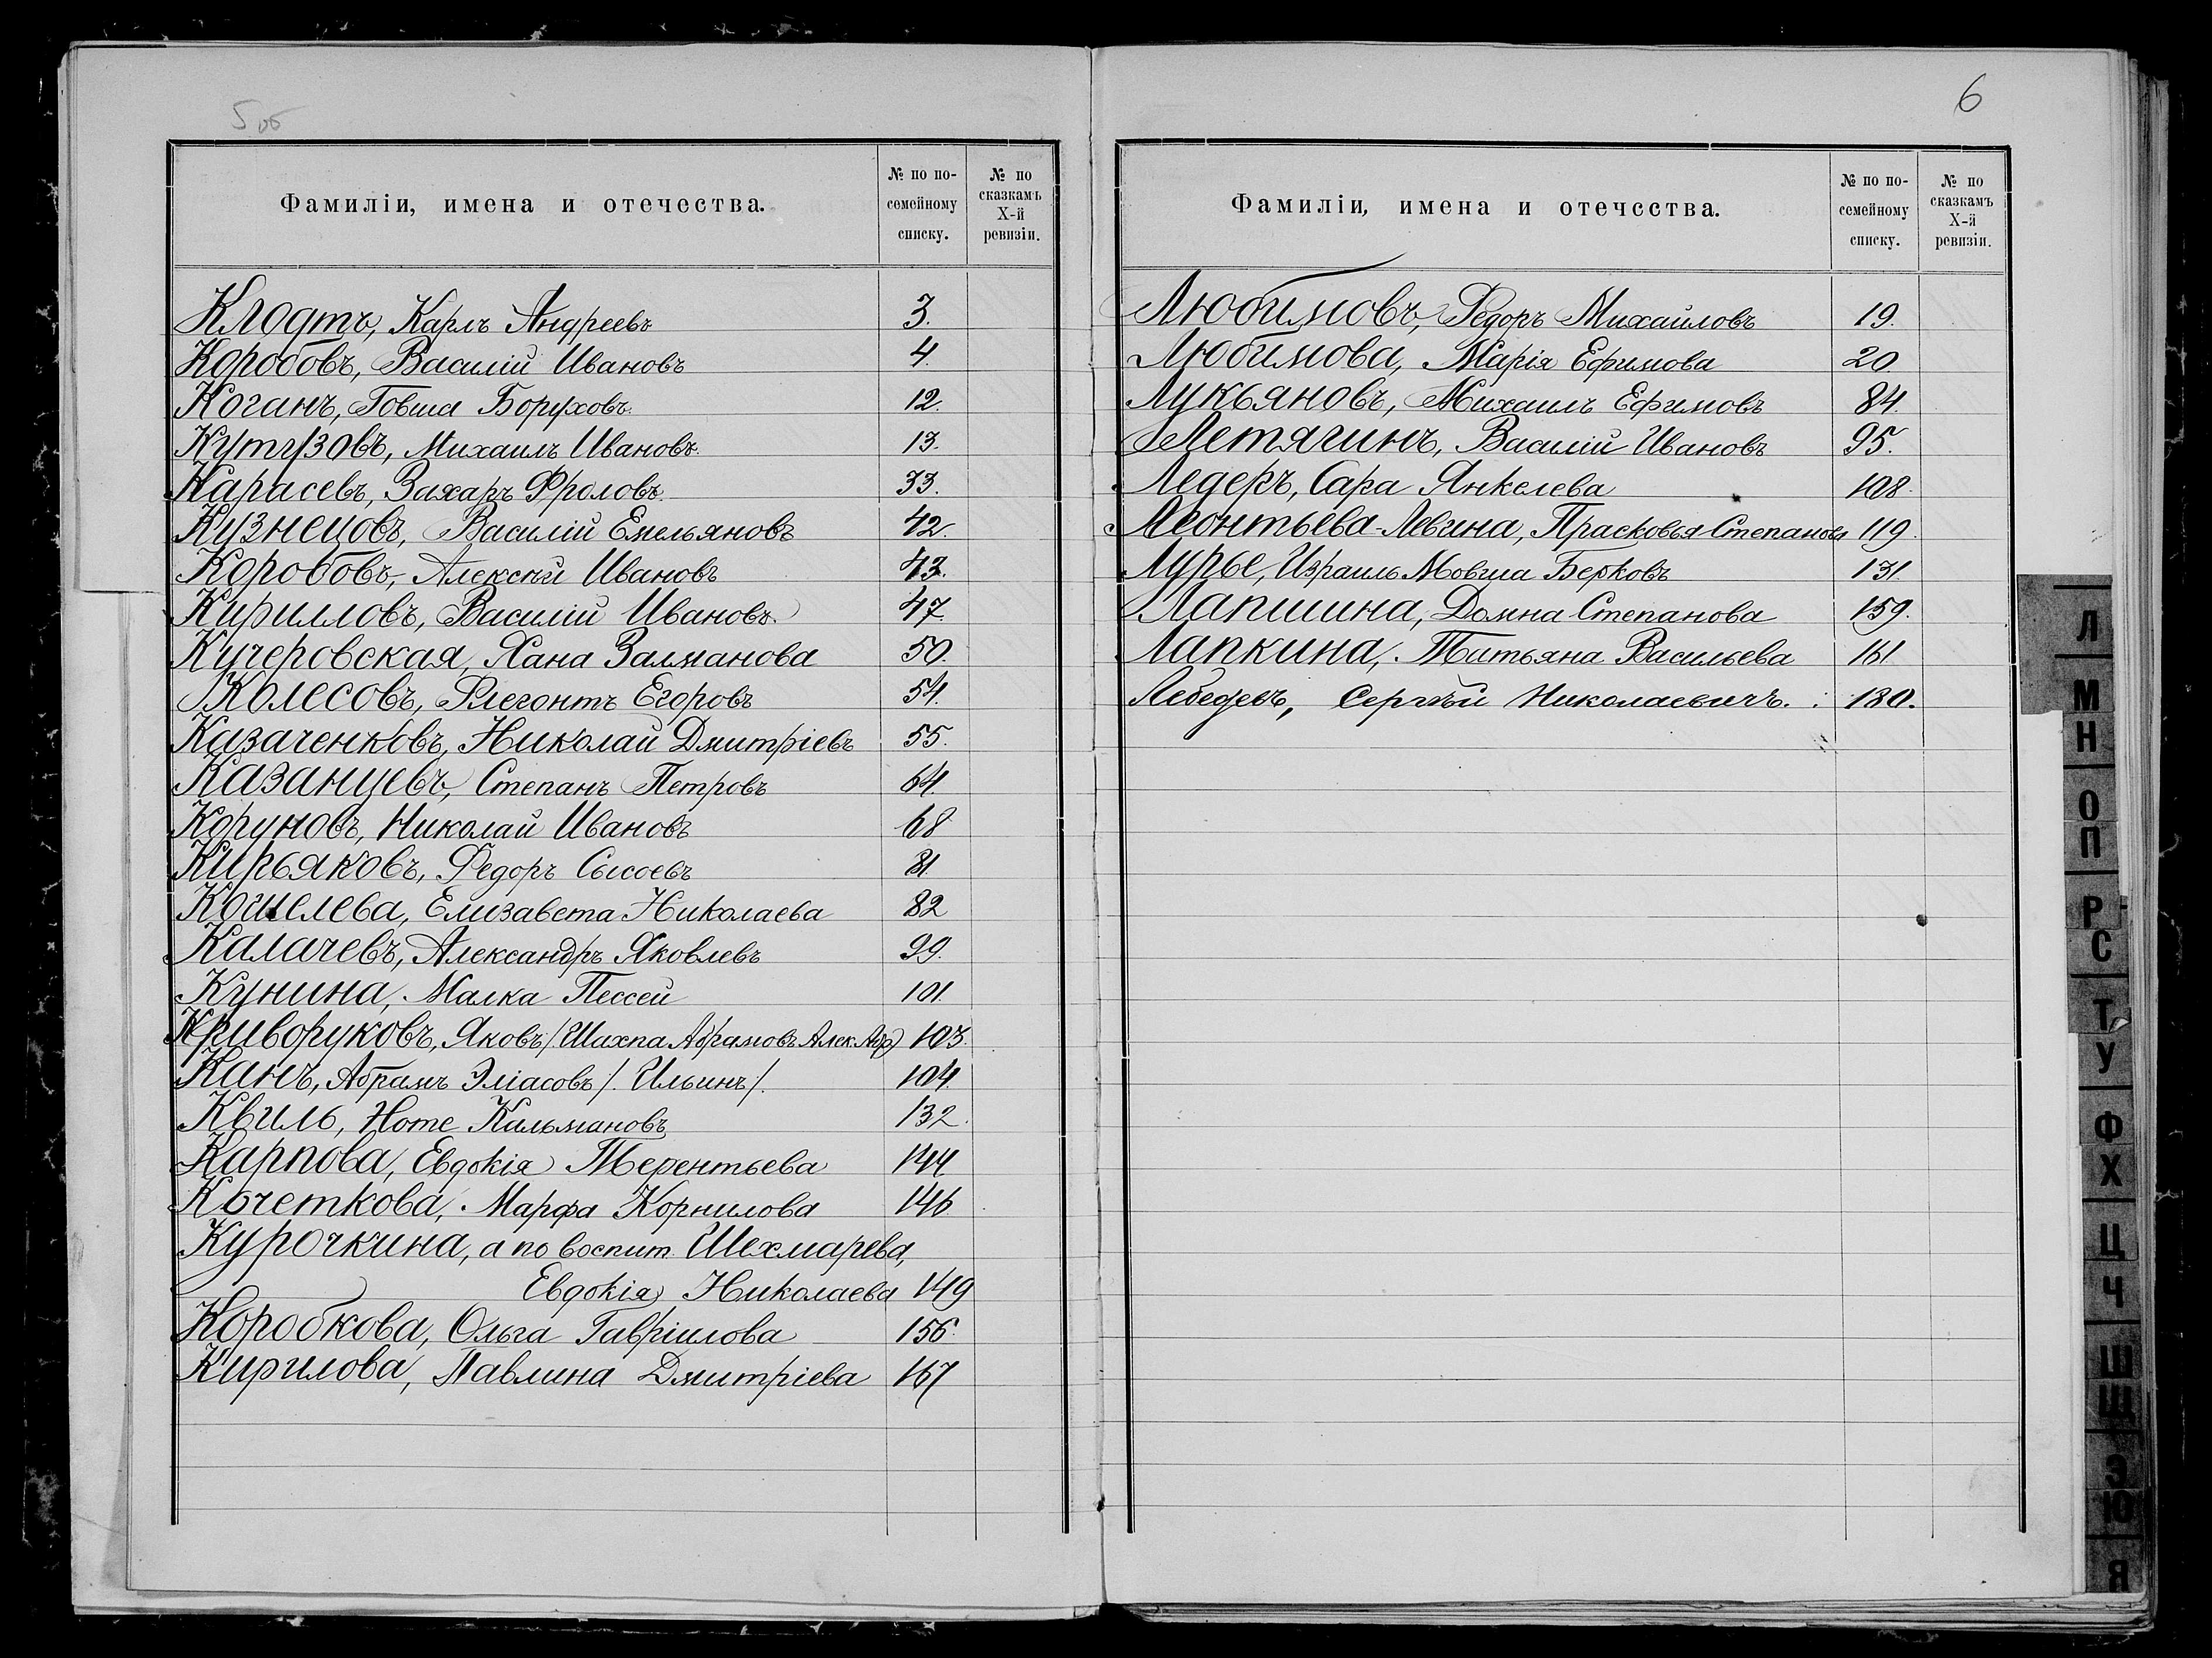 5 об
Фамиліи, имена и отечества.
№ по по-
семейному
списку.
№ по
сказкамъ
X-й
ревизіи.
Клодтъ, Карлъ Андреевъ 3.
Коробовъ, Василій Ивановъ 4.
Коганъ, Говша Боруховъ. 12.
Кутузовъ, Михаилъ Ивановъ. 13.
Карасевъ, Захаръ Фроловъ. 33.
Кузнецовъ, Василій Емельяновъ 42.
Коробовъ, Алексѣй Ивановъ 43.
Кирилловъ, Василій Ивановъ. 47.
Кучеровская, Хана Залманова 50.
Колесовъ, Флегонтъ Егоровъ 54.
Казаченковъ, Николай Дмитріевъ 55.
Казанцевъ, Степанъ Петровъ 64.
Коруновъ, Николай Ивановъ 68
Кирьяковъ, Федоръ Сысоевъ 81.
Кошелева, Елизавета Николаева 82
Калачевъ, Александръ Яковлевъ 99.
Кунина, Малка Пессей 101.
Криворуковъ, Яковъ /Шахна Абрамовъ Алек. Абр) 103.
Канъ, Абрамъ Эліасовъ /. Ильинъ /. 104.
Квиль, Ноте Кальмановъ 132.
Карпова, Евдокія Терентьева 144.
Кочеткова, Марфа Корнилова 146
Курочкина, а по воспит. Шехмарева,
Евдокія Николаева 149
Коробкова, Ольга Гавріилова 156.
Кирилова, Павлина Дмитріева 167
6
Фамиліи, имена и отечества.
№ по по-
семейному
списку.
№ по
сказкамъ
X-й
ревизіи.
Любимовъ, Федоръ Михаиловъ 19.
Любимова, Марія Ефимова 20
Лукьяновъ, Михаилъ Ефимовъ 84.
Летягинъ, Василій Ивановъ 95.
Ледеръ, Сара Янкелева 108.
Леонтьева-Левина, Прасковья Степанова 119.
Лурье, Израиль Мовша Берковъ 131
Лапшина, Домна Степанова 159.
Лапкина, Татьяна Васильева 161
Лебедевъ, Сергѣй Николаевичъ. 180.
Л
М
Н
О
П
Р
С
Т
У
Ф
Х
Ц
Ч
Ш
Щ
Э
Ю
Я